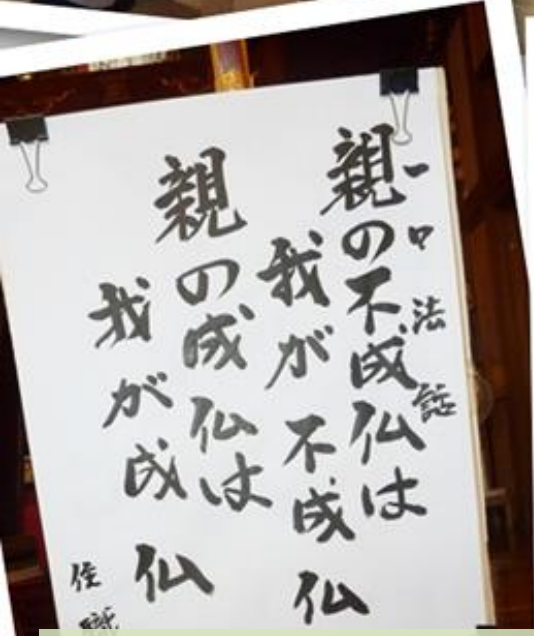 一口法話
親の不成仏は
我が不成仏
親の成仏は
我が成仏
住職